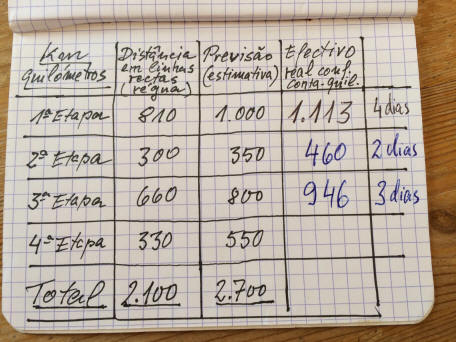 Km quilómetros | Distância em linhas rectas (régua) | Previsão (estimativa) | Efectivo real conf. conta-quil.
1ª Etapa 810 1.000 1.113 4 dias
2ª Etapa 300 350 460 2 dias
3ª Etapa 660 800 946 3 dias
4ª Etapa 330 550
Total 2.100 2.700